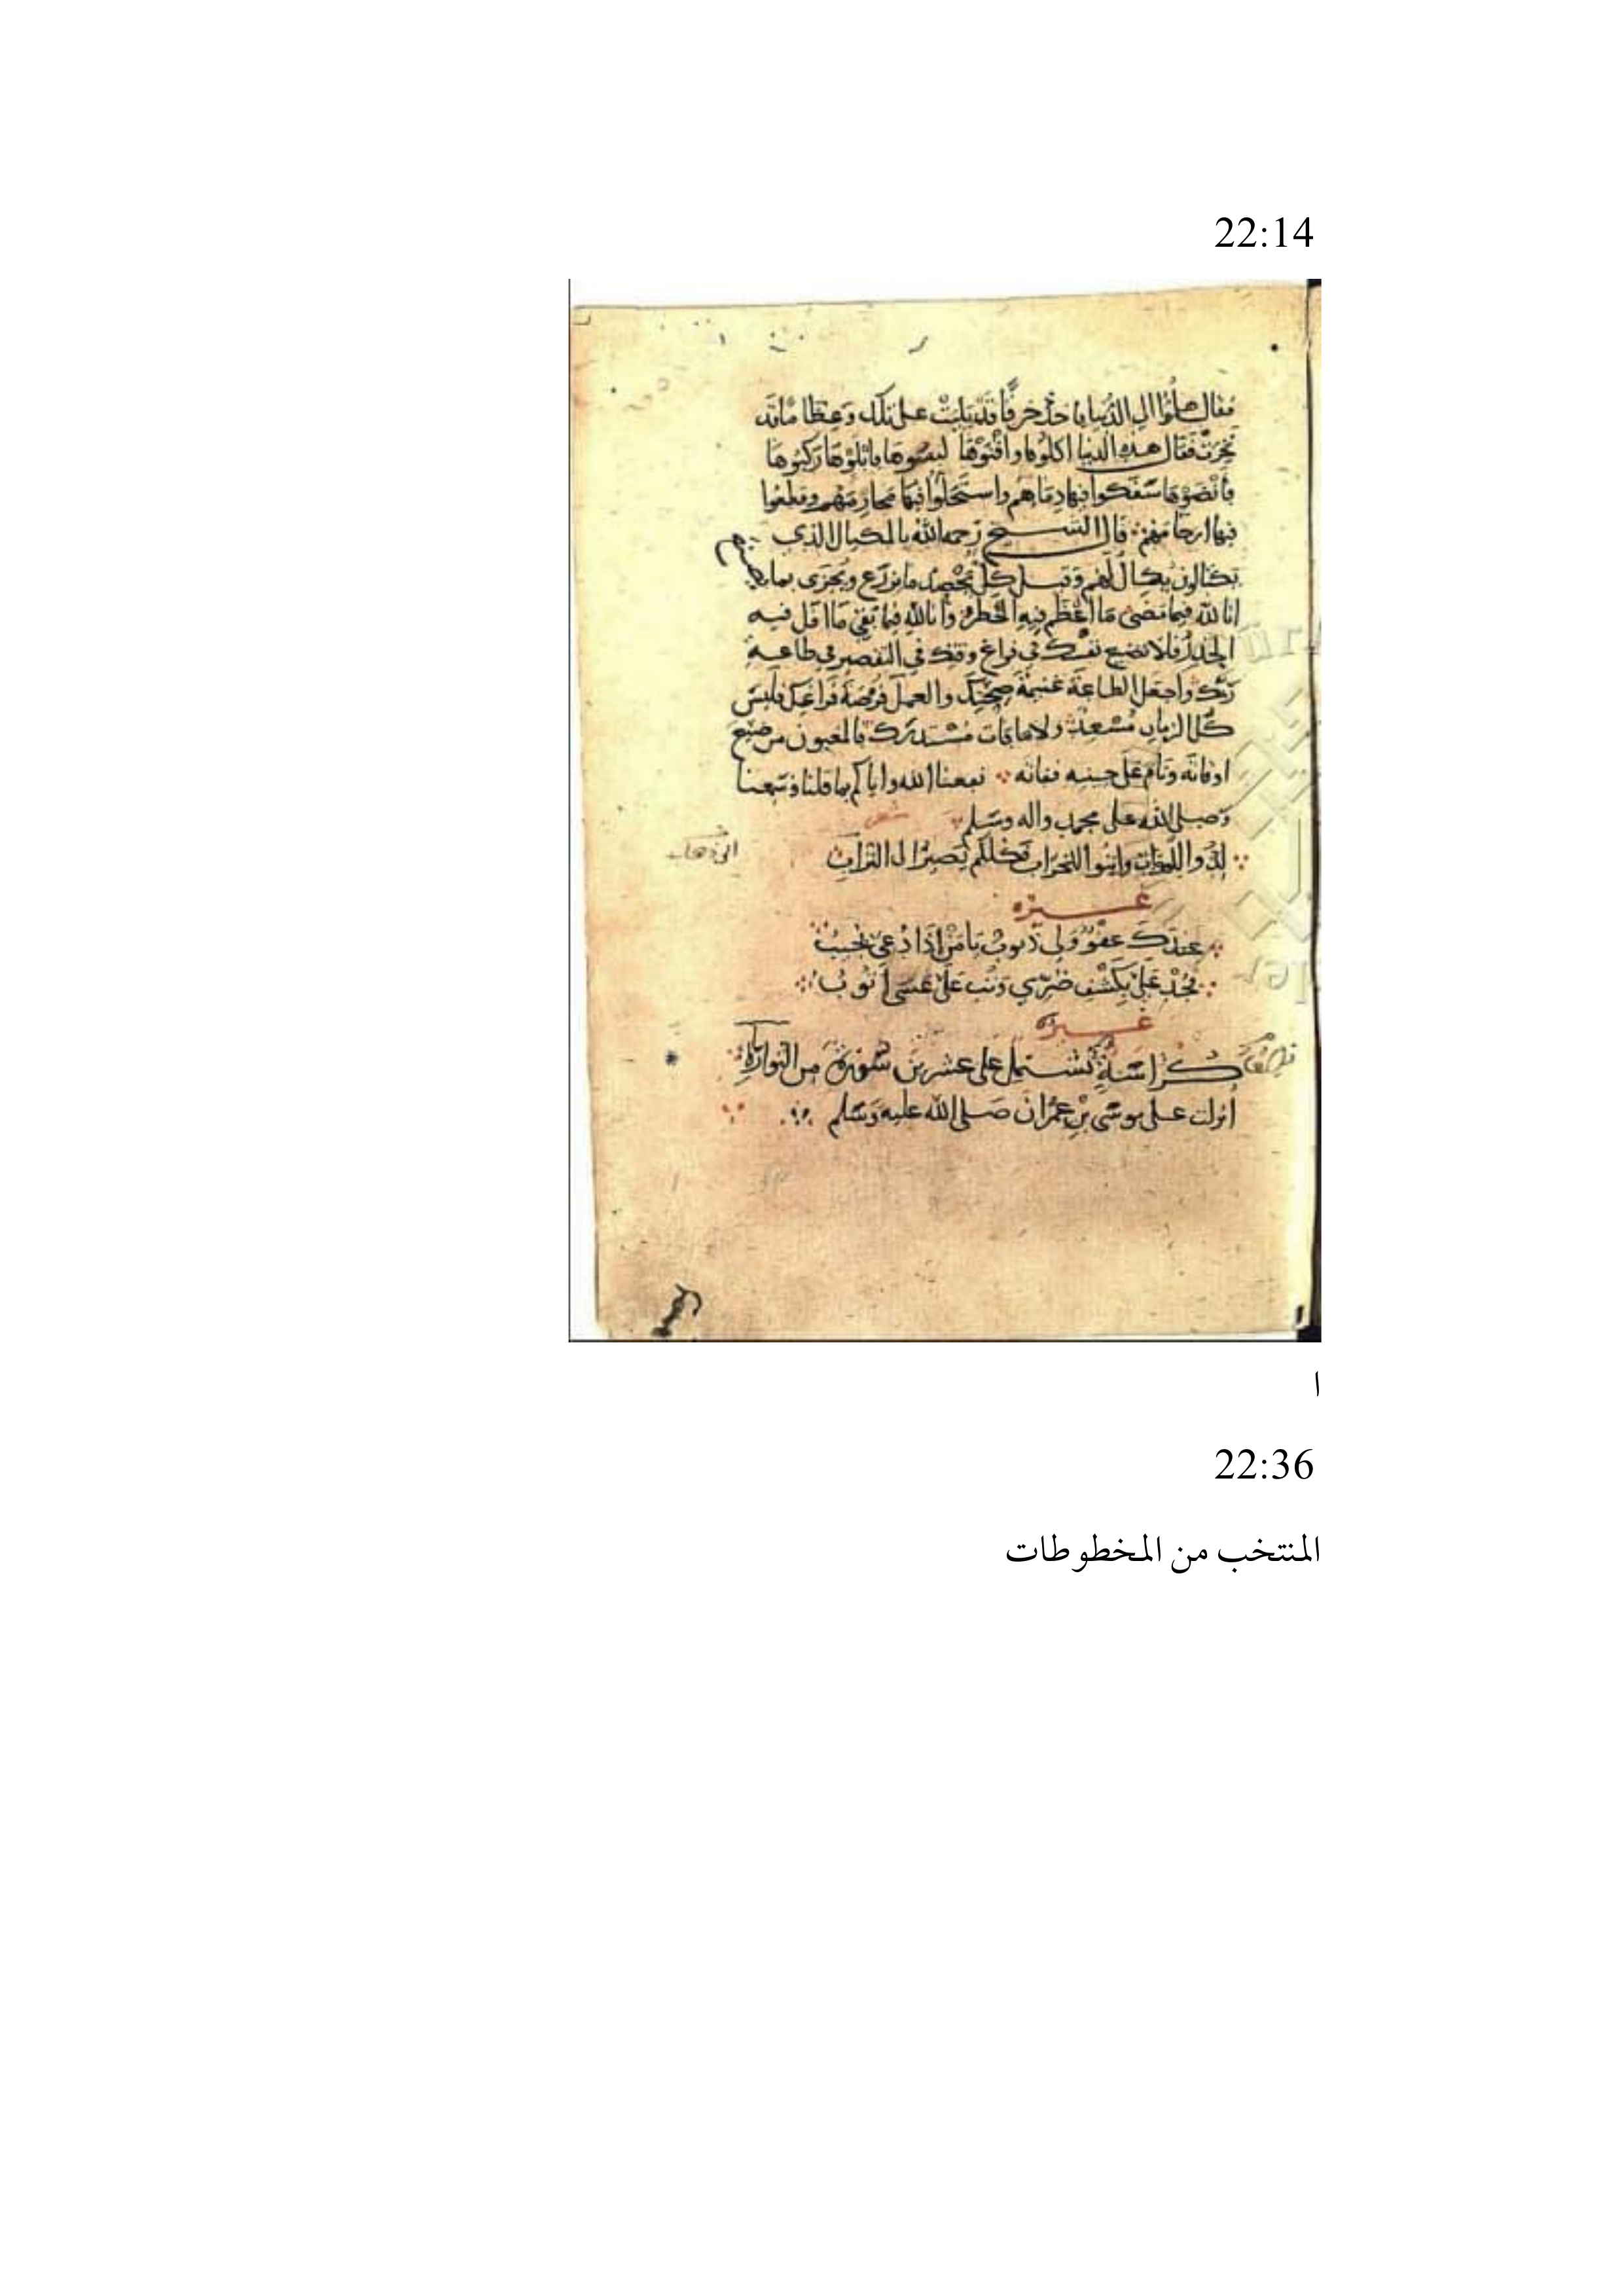 22:14
فقال هلموا الى الدنيا فاخذ خرقا قد بليت على تلك وعظاما قد
نخرت فقال هذه الدنيا اكلوها واقنوها لبسوها فابلوها ركبوها
فانضوها سفكوا فيها دماهم واستحلوا فيها محارمهم وقطعوا
فيها ارحامهم قال الشيخ رحمه الله بالمكيال الذي
تكتالون يكال لهم وقيل كل يحصد ما يزرع ويجزى بما
انا لله فيما مضى ما اعظم فيه الخطر وانا لله فيما بقي ما اقل فيه
الحذر فلا تضع نفسك في فراغ وقتك في التقصير في طاعة
ربك واجعل الطاعة غنيمة صحتك والعمل فرصة فراغك فليس
كل الزمان مسعد ولا ما فات مستدرك فالمغبون من ضيع
اوقاته ونام على جنبه ففاته نفعنا الله واياكم بما قلنا وسمعنا
وصلى الله على محمد واله وسلم
لدوا للموت وابنوا للخراب فكلكم يصير الى التراب
غيره
عندك عفو ولي ذنوب يا من اذا دعي يجيب
فجد علي بكشف ضري وتب علي عسى اتوب
غيره
كراسة تشتمل على عشرين سورة من التوراة
انزلت على موسى بن عمران صلى الله عليه وسلم
ا
22:36
المنتخب من المخطوطات